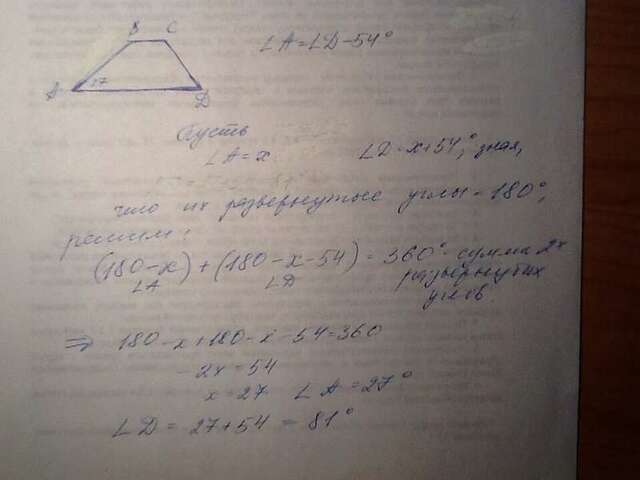 B C
A 27 D
∠A=∠D-54°
Пусть
∠A=x ∠D=x+54°, зная,
что их развернутые углы=180°,
решим:
(180-x)+(180-x-54)=360°-сумма 2х
∠A ∠D развёрнутых
углов.
⇒ 180-x+180-x-54=360
-2x=54
x=27 ∠A=27°
∠D=27+54=81°